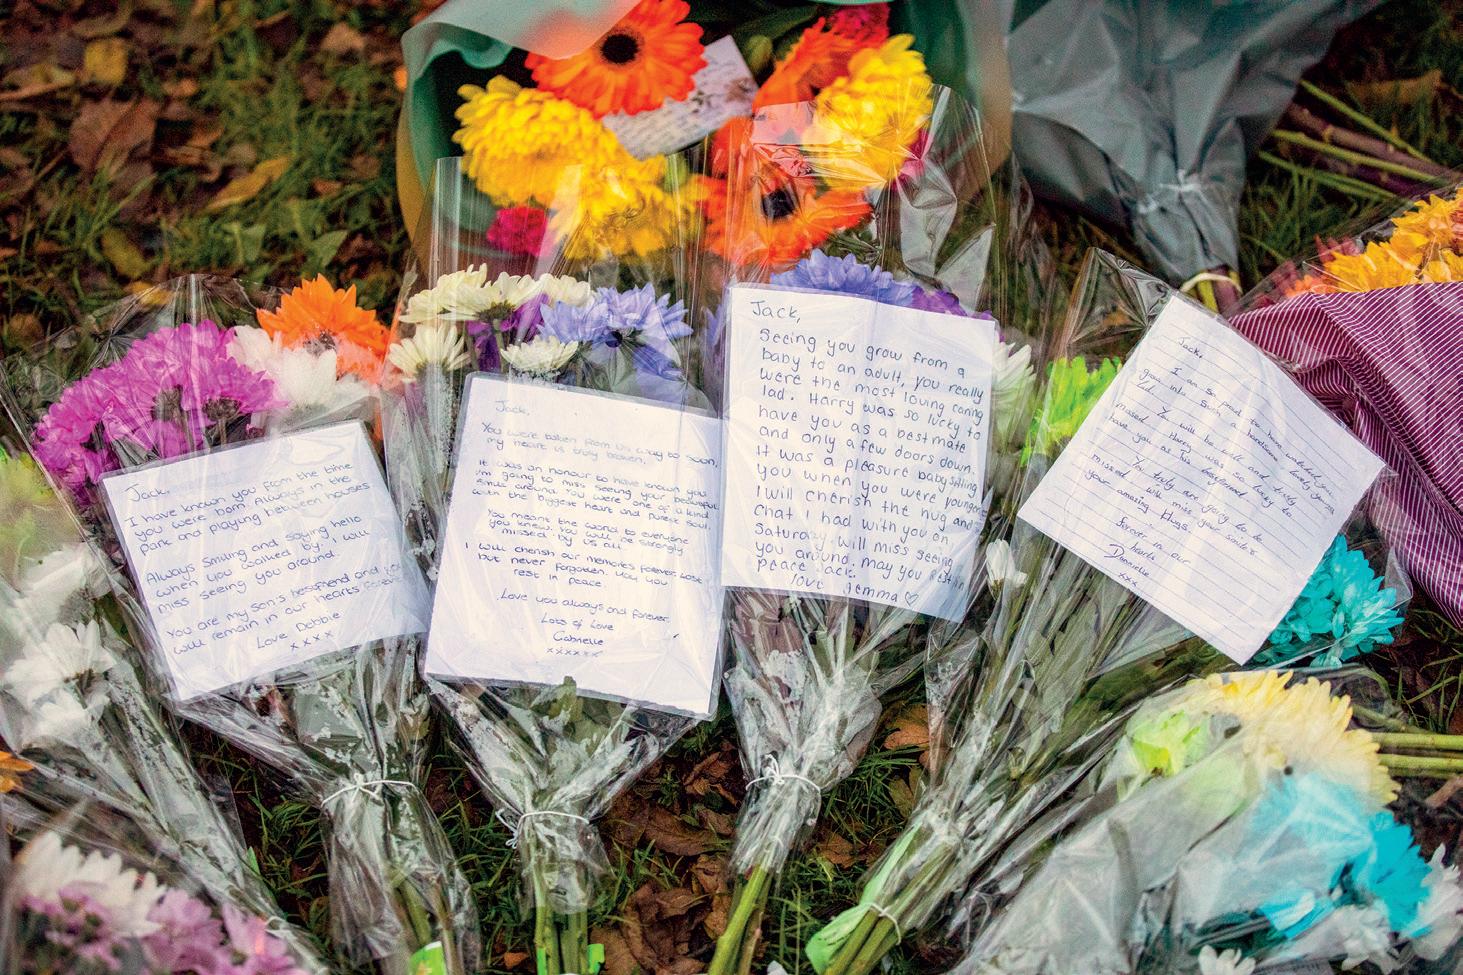 Jack,
I have known you from the time
you were born. Always in the
park and playing between houses
Always smiling and saying hello
when you walked by. I will
miss seeing you around.
You are my son's bestfriend and you
will remain in our hearts forever.
Love Debbie
x x x
Jack,
You were taken from us way to soon,
my heart is truly broken.
It was an honour to have known you
I'm going to miss seeing your beautiful
smile around. You were one of a kind
with the biggest heart and purest soul.
You meant the world to everyone
you knew. You will be strongly
missed by us all.
I will cherish our memories forever. Lost
but never forgotten. May you
rest in peace.
Love you always and forever.
Lots of Love
Gabrielle
xxxxxx
Jack,
Seeing you grow from a
baby to an adult, you really
were the most loving caring
lad. Harry was so lucky to
have you as a best mate
and only a few doors down.
It was a pleasure babysitting
you when you were younger
I will cherish the hug and
chat I had with you on
Saturday. will miss seeing
you around. may you rest in
peace Jack.
love Jemma ♡
Jack,
I am so proud to have watched you
grow into such a handsome lovely young
You will be well and truly
missed. Harry was so lucky to
have you as his bestfriend.
You truly are going to be
missed. will miss your smile &
your amazing Hugs.
forever in our
hearts
Dannielle
xxx